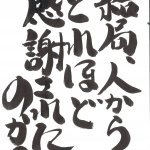 結局、人から
どれほど
感謝された
のか